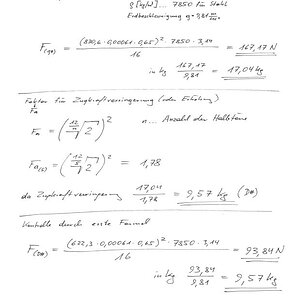 ρ [kg/m³]... 7850 für Stahl
Erdbeschleunigung g = 9,81 m/s²
F(g#) = (830,6 · 0,00061 · 0,65)² · 7850 · 3,14 / 16 = 167,17 N
in kg 167,17 / 9,81 = 17,04 kg
Faktor für Zugkraftverringerung (oder Erhöhung)
Fn
Fn = (12/n √2)² n... Anzahl der Halbtöne
Fn(5) = (12/5 √2)² = 1,78
die Zugkraftverringerung 17,04 / 1,78 = 9,57 kg (D#)
Kontrolle durch erste Formel
F(D#) = (622,3 · 0,00061 · 0,65)² · 7850 · 3,14 / 16 = 93,84 N
in kg 93,84 / 9,81 = 9,57 kg